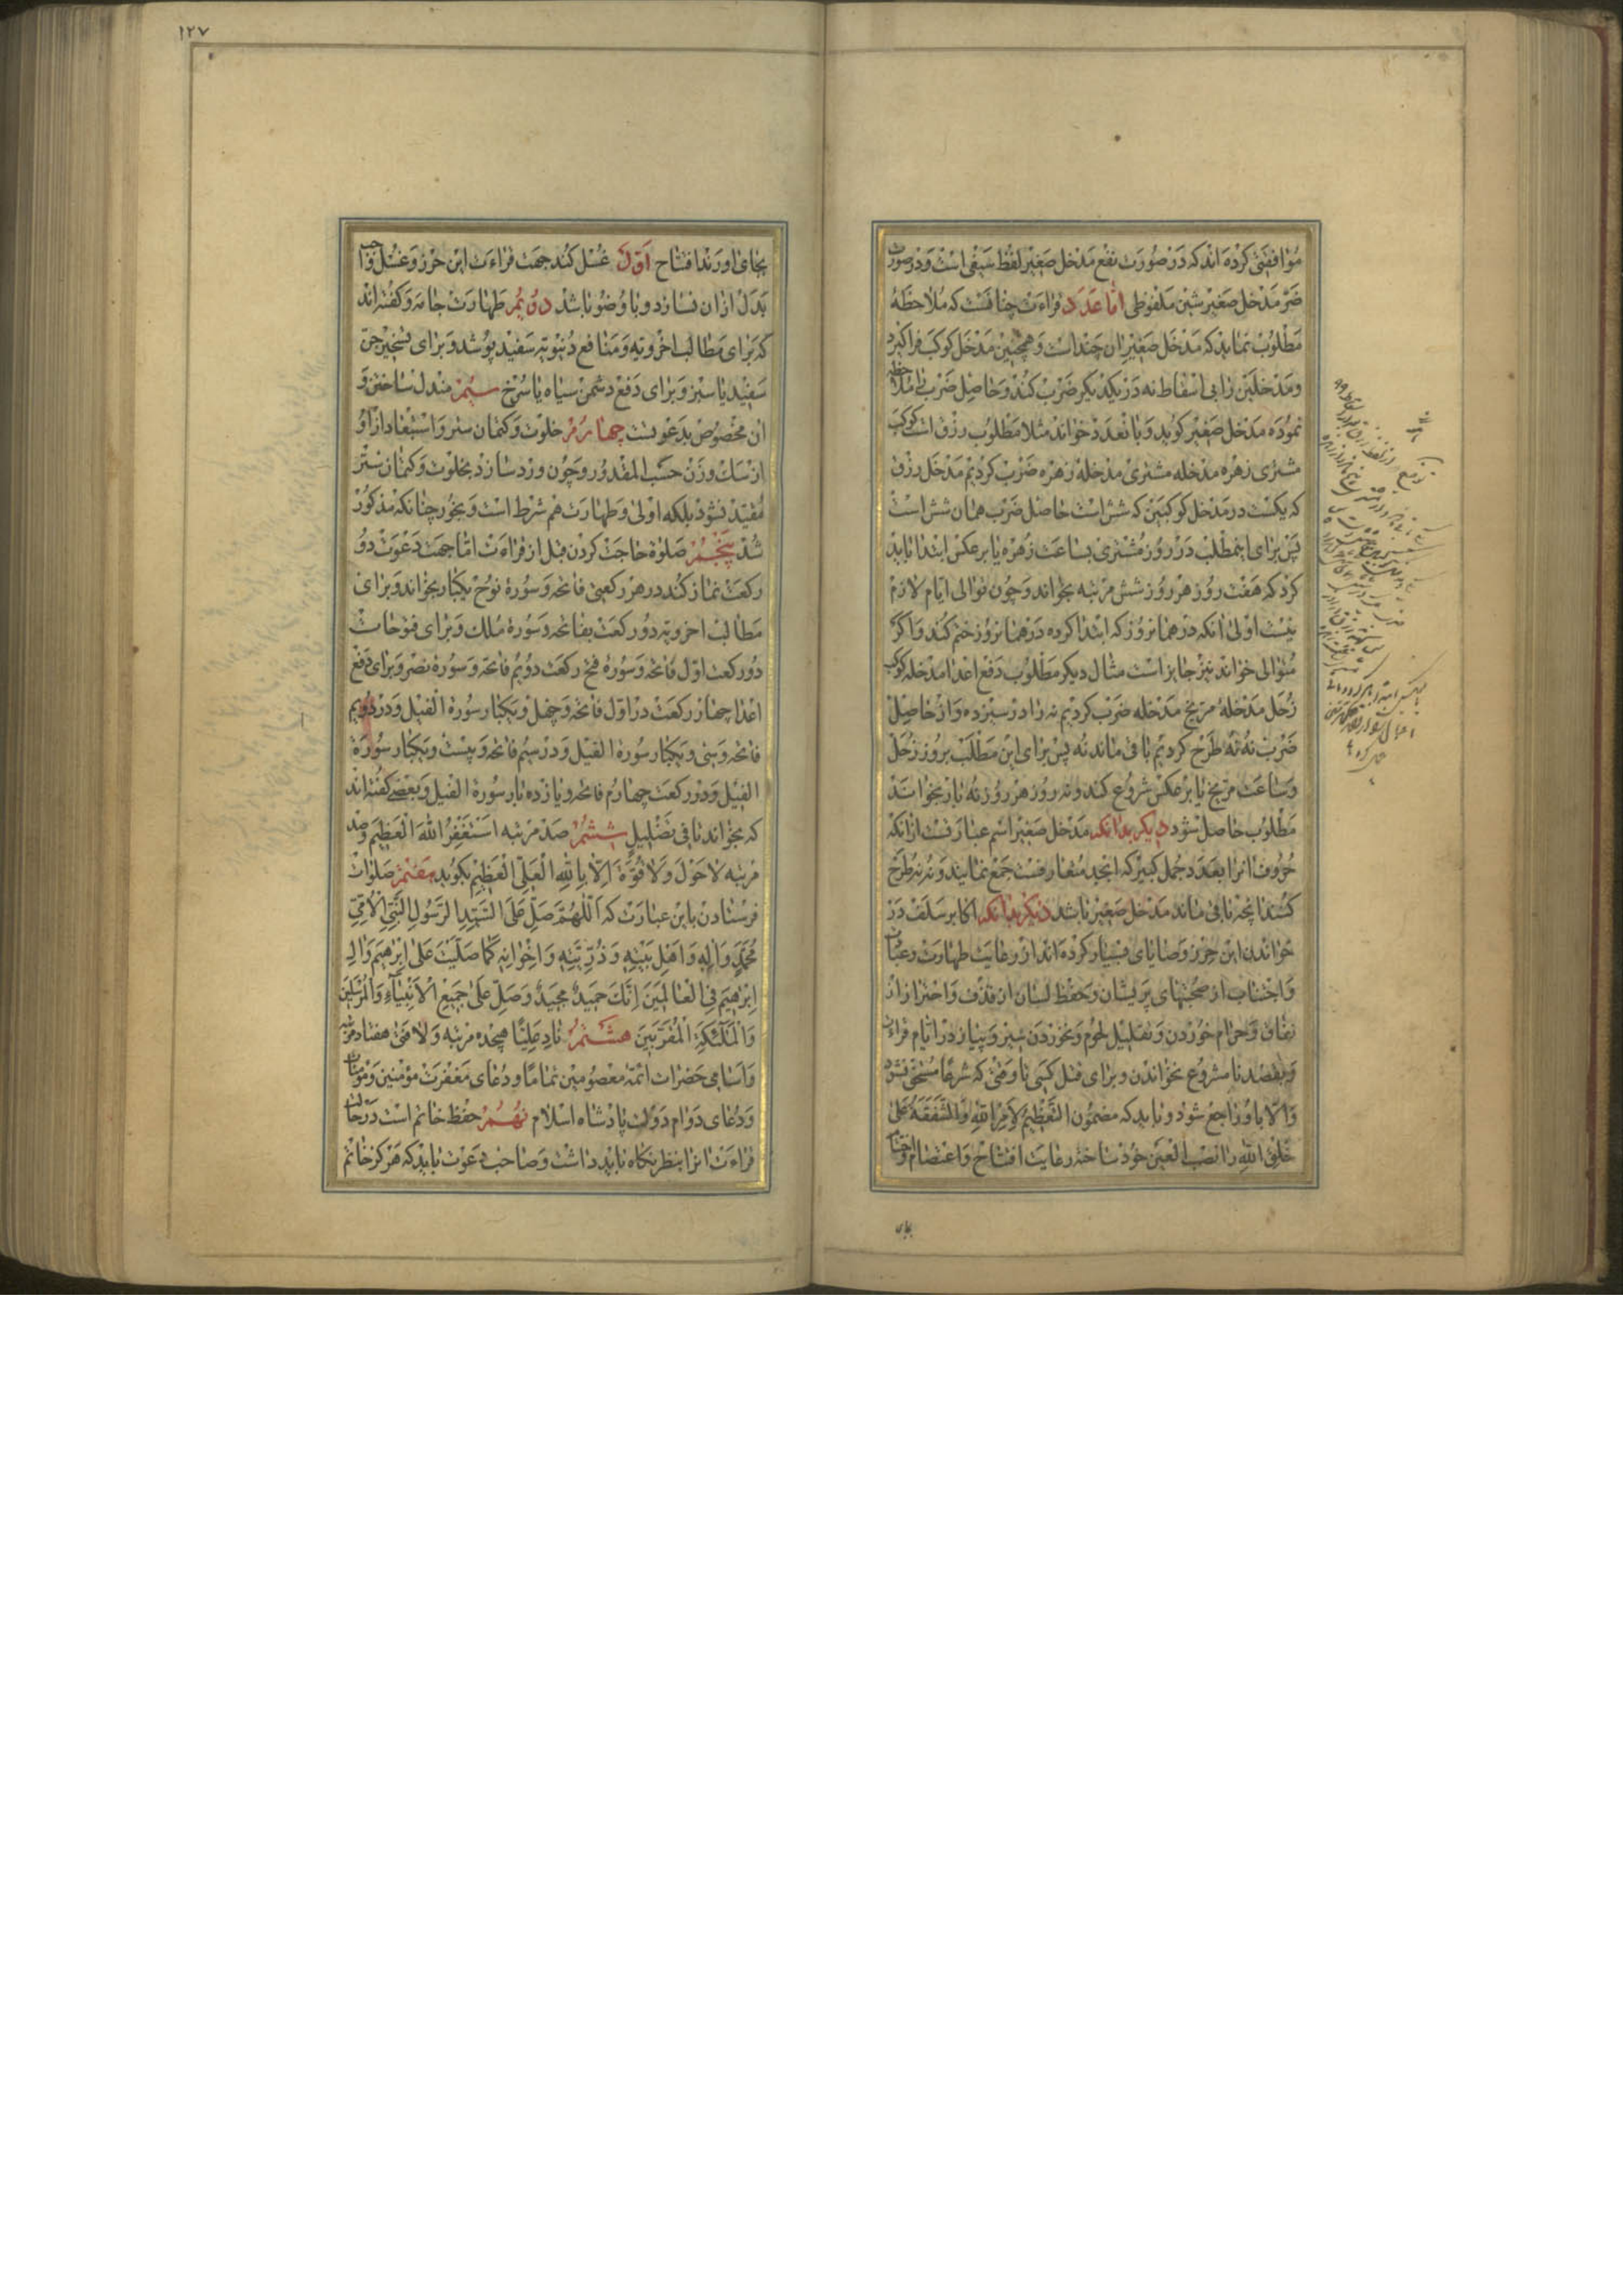 موافقتی کرده اند که در صورت نفع مدخل صغیر لفظ سبقی است و در صورت
ضرّ مدخل صغیر شین ملفوظی امّا عدد قراءت چنانست که ملاحظهٔ
مطلوب نماید که مدخل صغیر ان چند است و همچنین مدخل کوکب فراکیرد
و مدخلین را بی اسقاط نه در یکدیکر ضرب کند و حاصل ضرب را ملاحظه
نموده مدخل صغیر کوید و بانعدد خواند مثلا مطلوب رزق است کوکب
مشتری زهره مدخله مشتری مدخله زهره ضرب کردیم مدخل رزق
که یکست در مدخل کوکبین که شش است حاصل ضرب همان شش است
پس برای اینمطلب در روز مشتری بساعت زهره یا برعکس ابتدا باید
کرد که هفت روز هر روز شش مرتبه بخواند و چون توالی ایام لازم
نیست اولی انکه در همانروز که ابتدا کرده در همانروز ختم کند و اکر
متوالی خواند نیز جایز است مثال دیکر مطلوب دفع اعدا مدخله کوکب
زحل مدخله مریخ مدخله ضرب کردیم نه را در سیزده و از حاصل
ضرب نه نه طرح کردیم باقی ماند نه پس برای این مطلب بروز زحل
و ساعت مریخ یا برعکس شروع کند و نه روز هر روز نه بار بخواند
مطلوب حاصل شود دیکر بدانکه مدخل صغیر اسم عبارتست از انکه
حروف انرا بعدد جمل کبیر که ابجد متعارفست جمع نمایند و نه نه طرح
کنند انچه باقی ماند مدخل صغیر باشد دیکر بدانکه اکابر سلف در
خواندن این حرز وصایای بسیار کرده اند از رعایت طهارت و عبادت
و اجتناب از صحبتهای پریشان و حفظ لسان از قذف و احتراز از
نفاق و حرام خوردن و تقلیل لحوم و نخوردن سیر و پیاز در ایام قراءت
و بقصد نامشروع نخواندن و برای قتل کسی تا وقتی که شرعا مستحق نشود
والّا باو راجع شود و باید که مضمون التعظیم لامر الله والشفقة علی
خلق الله را نصب العین خود ساخته رعایت افتتاح و اعتصام و اختتام
بجای
۱۲۷
بجای اورند افتتاح اوّل غسل کند جهت قراءت این حرز و غسل واجب
بدل ازان نسازد و با وضو باشد دویُم طهارت جامه و کفته اند
که برای مطالب اخرویه و منافع دنیویه سفید پوشد و برای تسخیر جن
سفید یا سبز و برای دفع دشمن سیاه یا سرخ سیُم مندل ساختن و
ان مخصوص بدعوتست چهارم خلوت و کتمان ستر و استبعاد از او
ازسات وزن حسب المقدور و چون ورد سازد بخلوت و کتمان ستر
مقید نشود بلکه اولی و طهارت هم شرط است و بخور چنانکه مذکور
شد پنجُم صلوة حاجت کردن قبل از قراءت امّا جهت دعوت دو
رکعت نماز کند در هر رکعتی فاتحه و سورهٔ نوح یکبار بخواند و برای
مطالب اخرویه دو رکعت بفاتحه و سورهٔ ملک و برای فتوحات
دو رکعت اول فاتحه و سورهٔ فتح رکعت دویم فاتحه و سورهٔ نصر و برای دفع
اعدا چهار رکعت در اول فاتحه و چهل و یکبار سورة الفیل و در دویم
فاتحه و سی و یکبار سورة الفیل و در سیم فاتحه و بیست و یکبار سورة
الفیل و در رکعت چهارم فاتحه و یازده بار سورة الفیل و بعضی کفته اند
که بخواند تا فی تضلیل ششُم صد مرتبه استغفر الله العظیم و صد
مرتبه لا حول ولا قوّة الّا بالله العلی العظیم بکوید هفتم صلوات
فرستادن باین عبارت که اللّهمّ صلّ علی السّیّد الرّسول النّبیّ الامّیّ
محمّد واله واهل بیته وذرّیّته واخوانه کما صلّیت علی ابرهیم وال
ابرهیم فی العالمین انّک حمید مجید وصلّ علی جمیع الانبیاء والمرسلین
والملئکة المقرّبین هشتُم ناد علیّا هیجده مرتبه و لا فتی هفتاد مرتبه
و اسامی حضرات ائمّه معصومین تماما و دعای مغفرت مؤمنین و مؤمنات
و دعای دوام دولت پادشاه اسلام نهُم حفظ خاتم است در حالت
قراءت انرا بنظر نکاه باید داشت و صاحب دعوت باید که هرکز خاتم